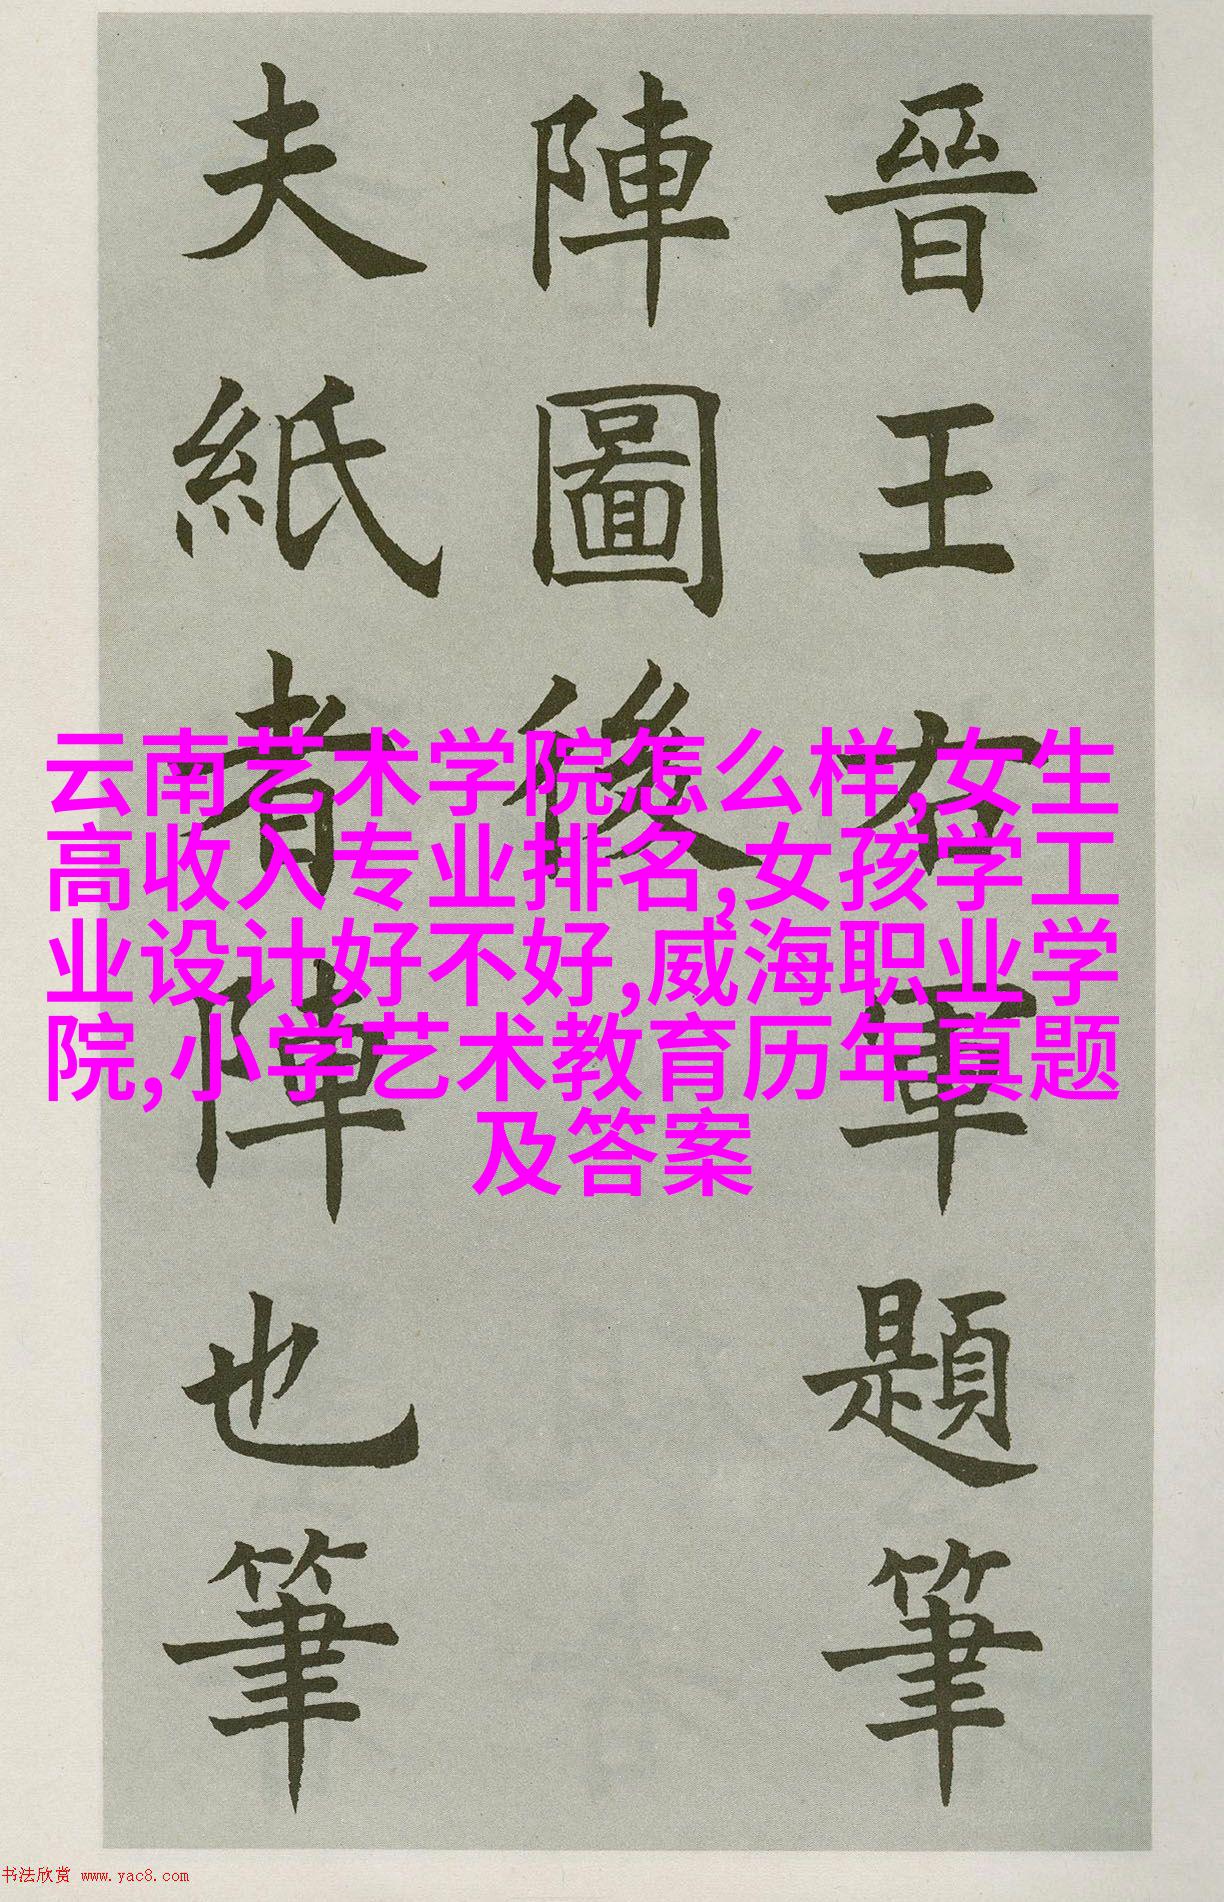 晉王右軍題筆
陣圖後
夫紙者陣也筆
云南艺术学院怎么样,女生
高收入专业排名,女孩学工
业设计好不好,威海职业学
院,小学艺术教育历年真题
及答案
书法欣赏 www.yac8.com